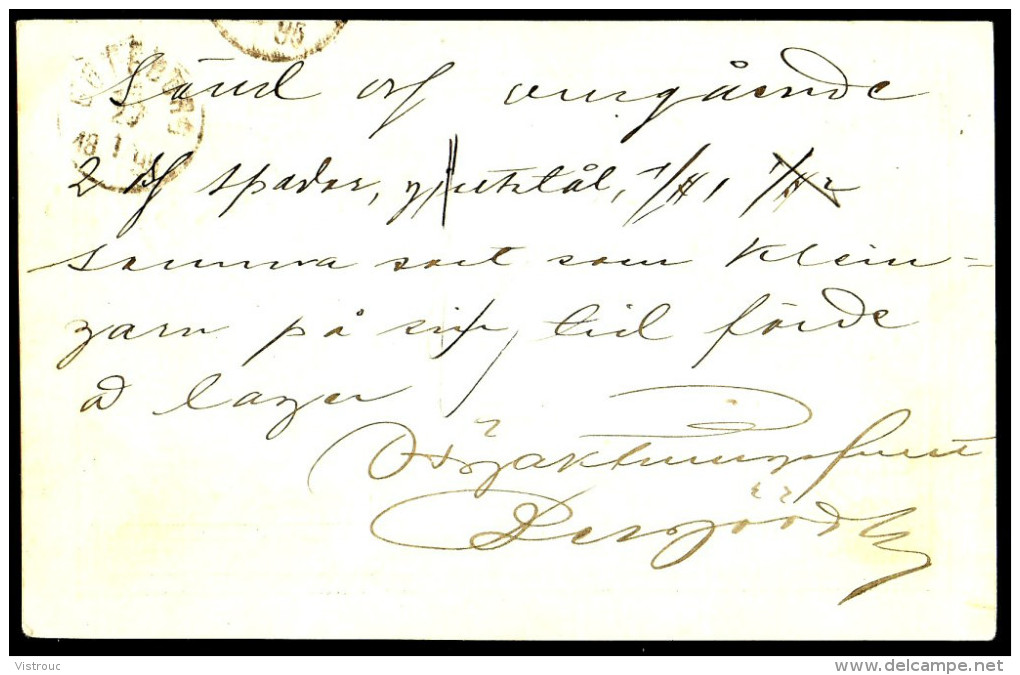 95
GÖTEBORG
18 1
Sänd oss omgående
2 ds spadar, gjutstål, 1/# 1,
samma sort som Klein-
zarn på sin tid förde
å lager
Högaktningsfullt
Vistrouc
www.delcampe.net